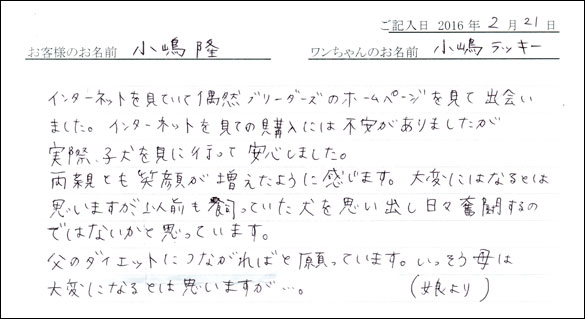 ご記入日 2016年 2月 21日
お客様のお名前 小嶋 隆 ワンちゃんのお名前 小嶋ラッキー
インターネットを見ていて偶然ブリーダーズのホームページを見て出会い
ました。インターネットを見ての購入には不安がありましたが
実際、子犬を見に行って安心しました。
両親とも笑顔が増えたように感じます。大変にはなるとは
思いますが 人前も飼っていた犬を思い出し日々奮闘するの
ではないかと思っています。
父のダイエットにつながればと願っています。いっそう母は
大変になるとは思いますが…。 (娘より)